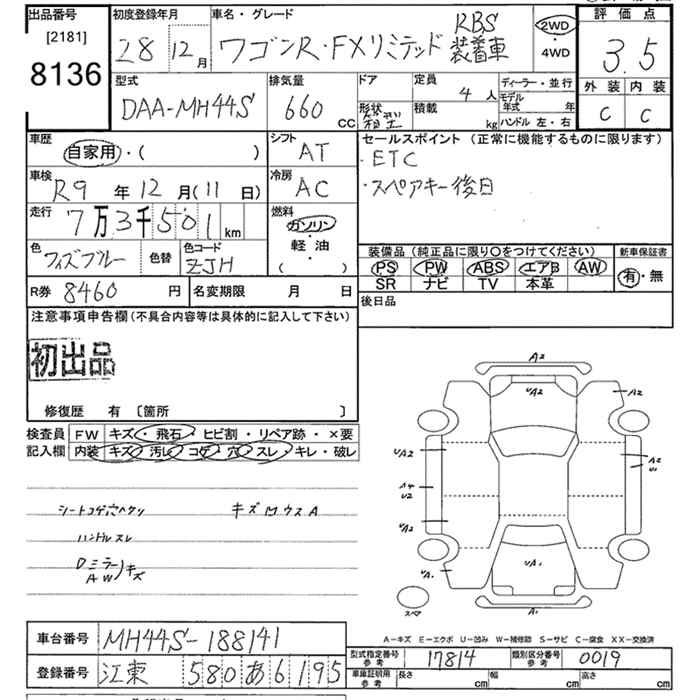 出品番号
[2181]
8136
初度登録年月
28 12月
車名・グレード
ワゴンR・FXリミテッド RBS装着車
2WD
・
4WD
評価点
3.5
外装 内装
C C
型式
DAA-MH44S
排気量
660 CC
ドア
形状
箱型
定員
4人
積載
kg
ディーラー・並行
モデル年式 年
ハンドル 左・右
車歴
自家用・( )
シフト
AT
車検
R9年12月(11日)
冷房
AC
走行
7万3千501km
燃料
ガソリン
・
軽・油
( )
色
フィズブルー
色替
色コード
ZJH
セールスポイント (正常に機能するものに限ります)
・ETC
・スペアキー後日
装備品 (純正品に限り〇をつけてください)
新車保証書
PS PW ABS エアB AW
SR ナビ TV 本革
有・無
R券 8460円
名変期限 月 日
後日品
注意事項申告欄 (不具合内容等は具体的に記入して下さい)
初出品
修復歴 有 〔箇所 〕
検査員記入欄
FW キズ・飛石・ヒビ割・リペア跡・×要
内装 キズ・汚レ・コゲ・穴・スレ・キレ・破レ
シートコゲ穴ヘタリ
キズMウスA
ハンドルスレ
Dミラー
AW
キズ
A2
UA2
A2
UA2
A2
U1
A4
U2
UA2
UA1
UA1
A1
スペア
A-キズ E-エクボ U-凹み W-補修跡 S-サビ C-腐食 XX-交換済
車台番号
MH44S-188141
登録番号
江東 580 あ 6195
型式指定番号
参考
17814
類別区分番号
参考
0019
車庫証明用
参考
長さ cm
幅 cm
高さ cm